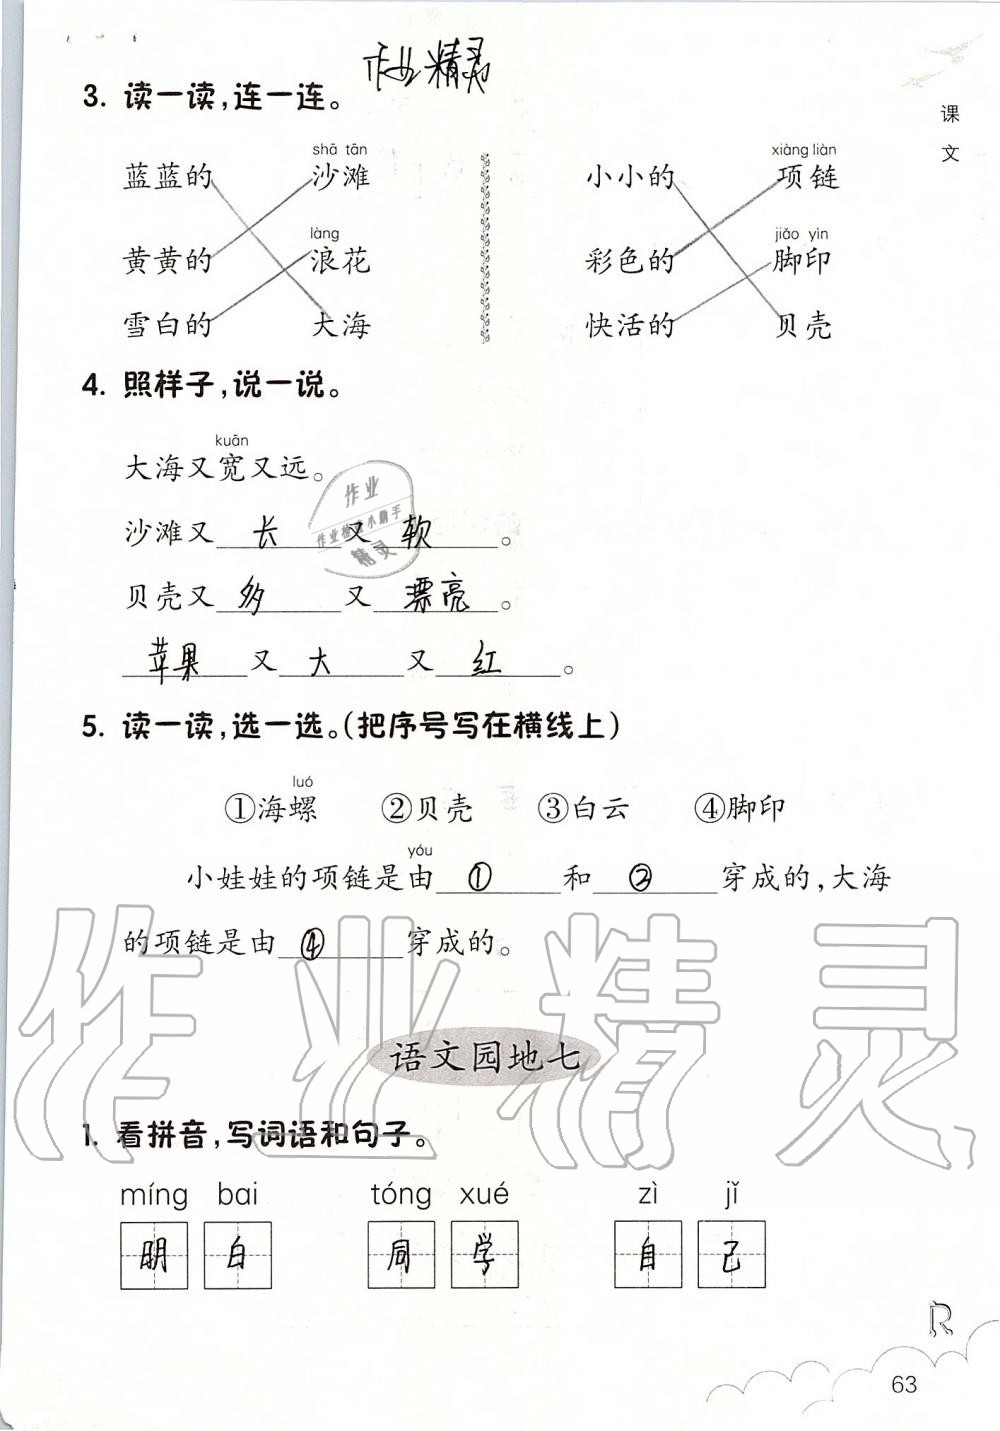 作业精灵
3. 读一读,连一连。
课文
shā tān
xiàng liàn
蓝蓝的 沙滩 小小的 项链
làng
jiǎo yìn
黄黄的 浪花 彩色的 脚印
雪白的 大海 快活的 贝壳
4. 照样子,说一说。
kuān
大海又宽又远。
作业
作业检查小助手
精灵
沙滩又 长 又 软 。
贝壳又 多 又 漂亮 。
苹果 又 大 又 红 。
5. 读一读,选一选。(把序号写在横线上)
luó
①海螺 ②贝壳 ③白云 ④脚印
yóu
小娃娃的项链是由 ① 和 ② 穿成的,大海
的项链是由 ④ 穿成的。
作业精灵
语文园地七
1. 看拼音,写词语和句子。
míng bai tóng xué zì jǐ
明白 同学 自己
R
63